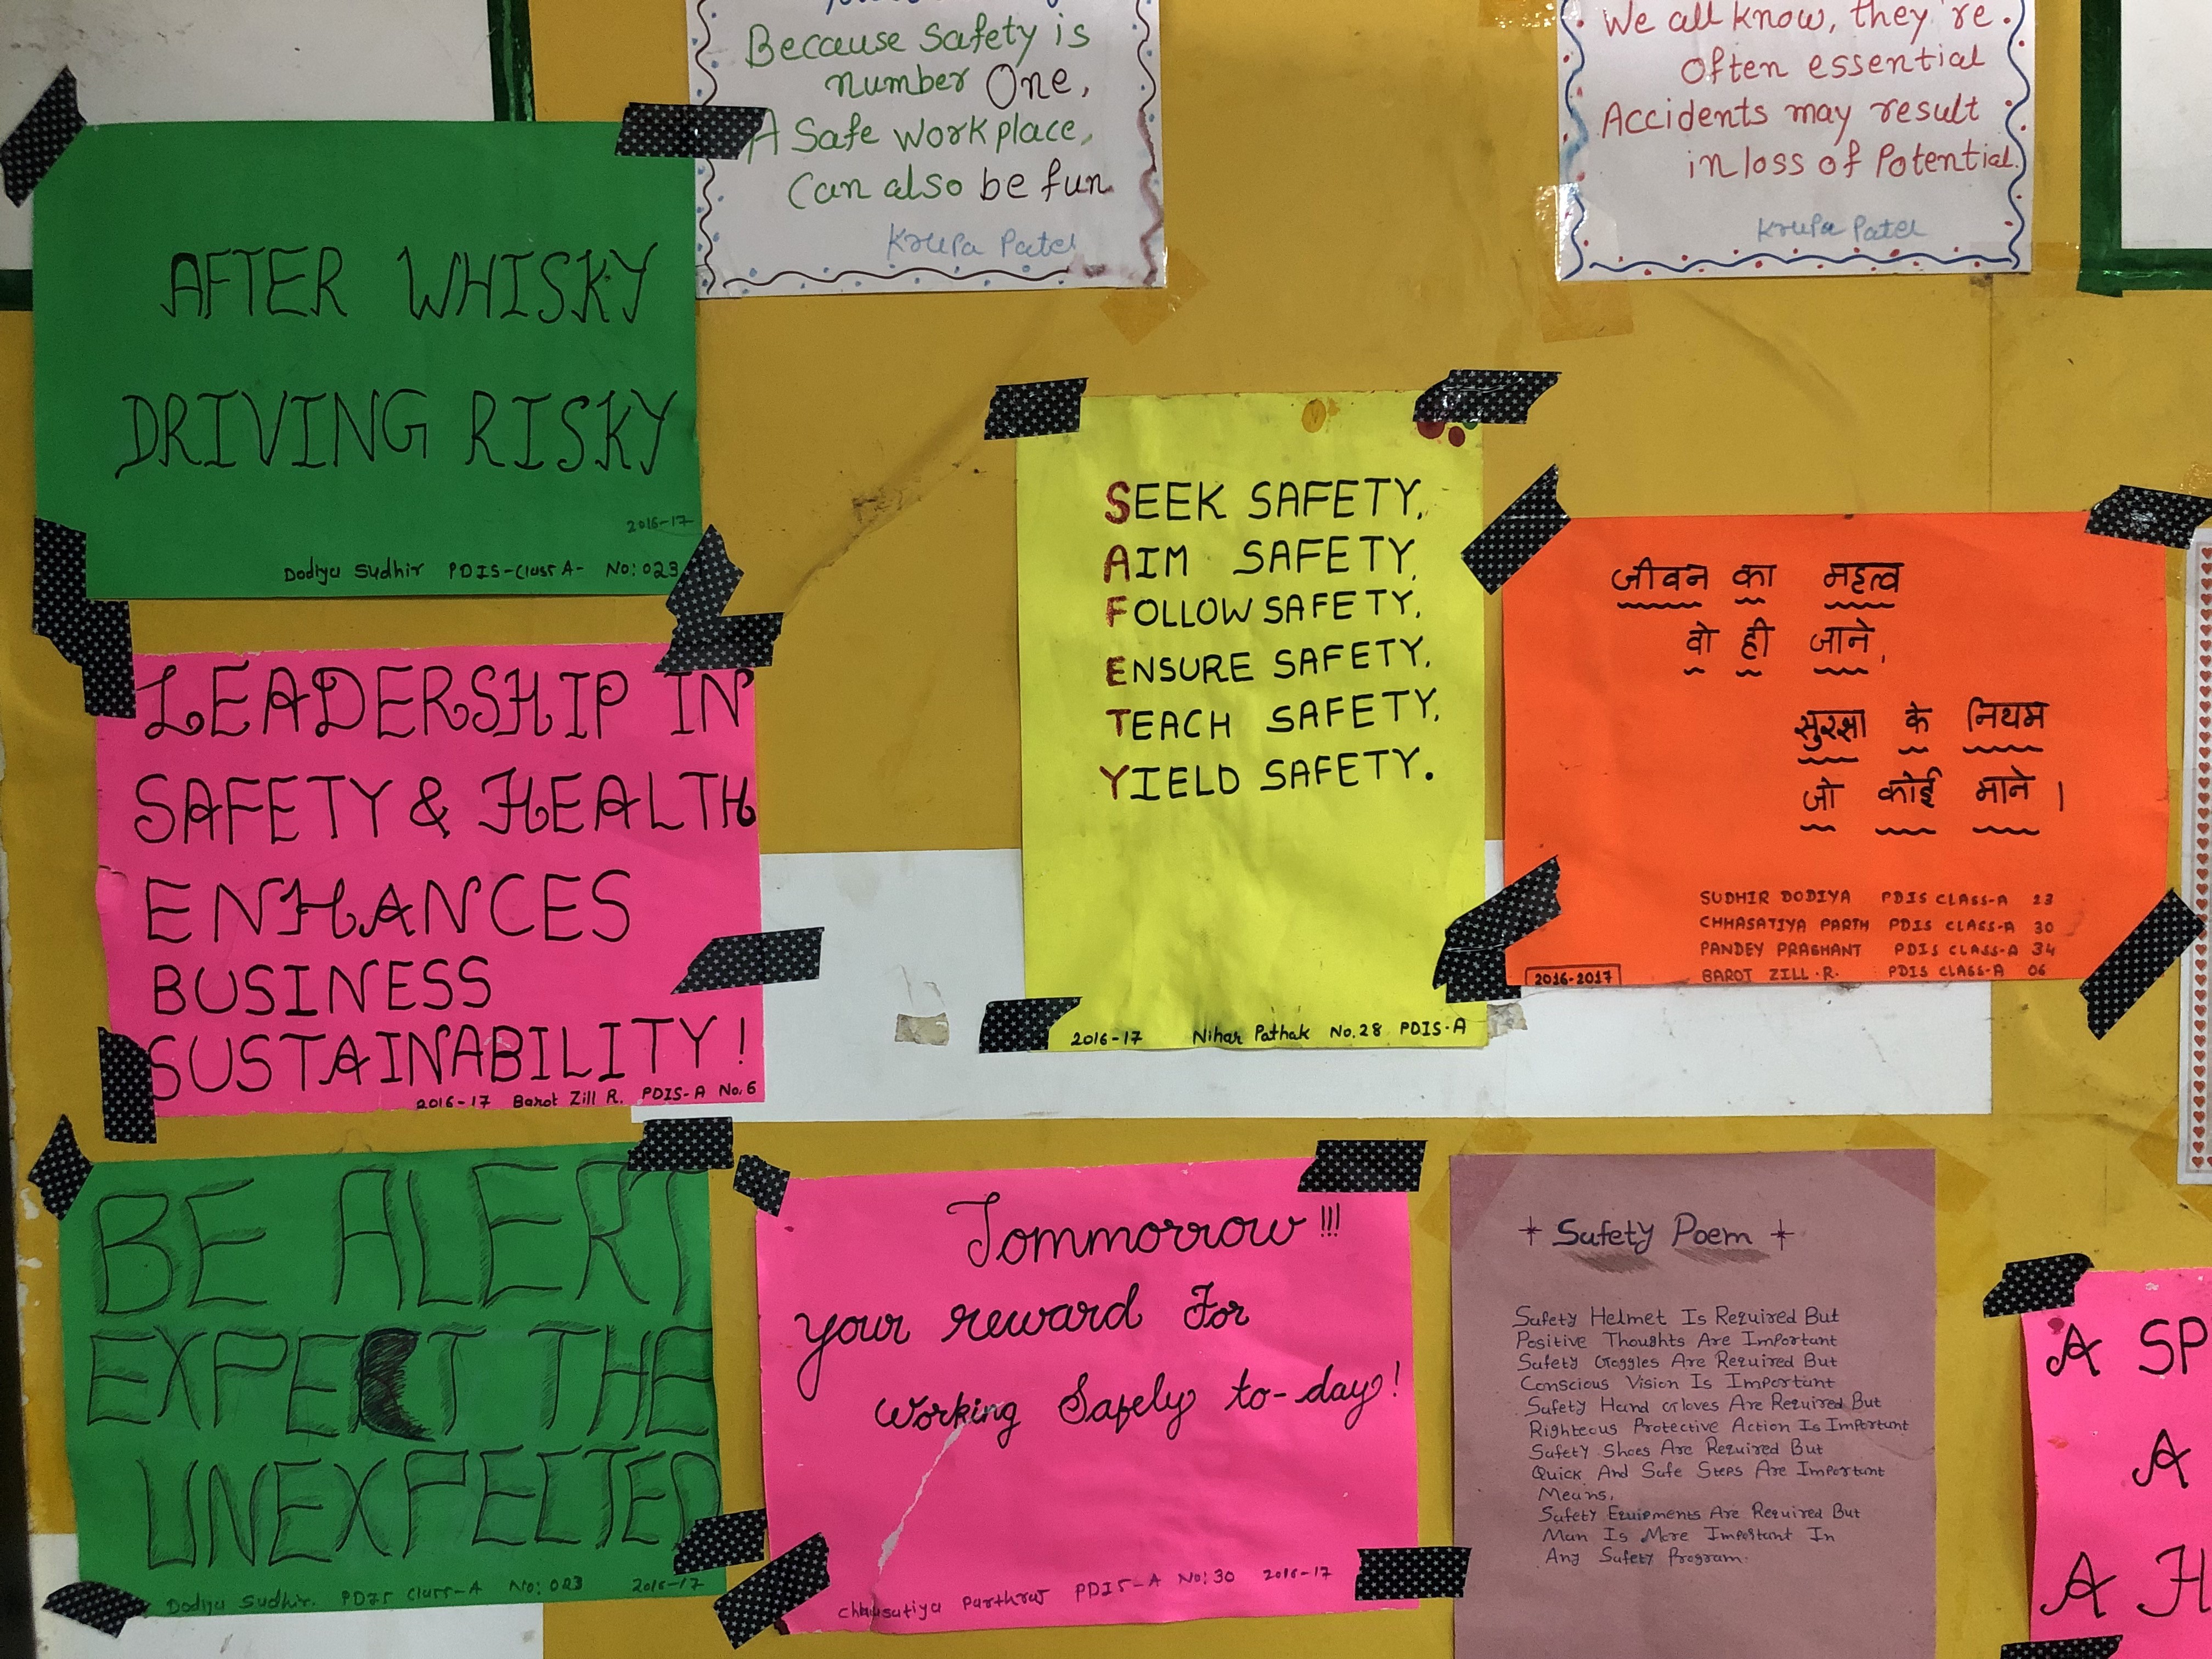 Because Safety is
number One,
A Safe workplace,
Can also be fun
Krupa Patel
We all know, they're
Often essential
Accidents may result
in loss of Potential.
Krupa Patel
AFTER WHISKY
DRIVING RISKY
2016-17
Dodiya Sudhir PDIS-Class A- No: 023
SEEK SAFETY,
AIM SAFETY,
FOLLOW SAFETY,
ENSURE SAFETY,
TEACH SAFETY,
YIELD SAFETY.
2016-17 Nihar Pathak No.28 PDIS-A
जीवन का महत्व
वो ही जाने,
सुरक्षा के नियम
जो कोई माने।
SUDHIR DODIYA PDIS CLASS-A 23
CHHASATIYA PARTH PDIS CLASS-A 30
PANDEY PRASHANT PDIS CLASS-A 34
BAROT ZILL.R. PDIS CLASS-A 06
2016-2017
LEADERSHIP IN
SAFETY & HEALTH
ENHANCES
BUSINESS
SUSTAINABILITY!
2016-17 Barot Zill R. PDIS-A No.6
BE ALERT
EXPECT THE
UNEXPECTED
Dodiya Sudhir. PDIS Class-A No: 023 2016-17
Tommorrow!!!
your reward For
Working Safely to-day!
Chhasatiya Parthraj PDIS-A No: 30 2016-17
Safety Poem
Safety Helmet Is Required But
Positive Thoughts Are Important
Safety Goggles Are Required But
Conscious Vision Is Important
Safety Hand Gloves Are Required But
Righteous Protective Action Is Important
Safety Shoes Are Required But
Quick And Safe Steps Are Important
Means,
Safety Equipments Are Required But
Man Is More Important In
Any Safety Program.
A SP
A
A H